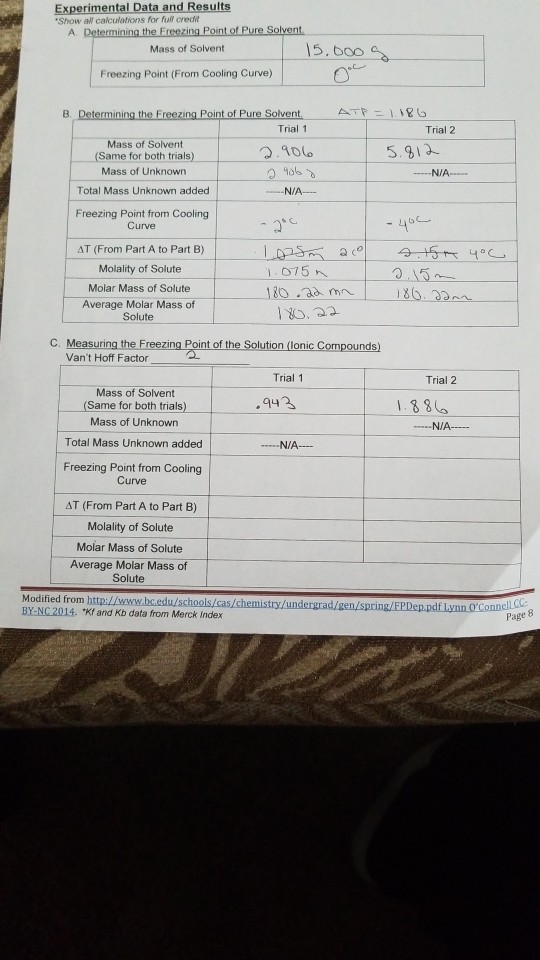 Experimental Data and Results
*Show all calculations for full credit
A. Determining the Freezing Point of Pure Solvent.
Mass of Solvent 15.000 g
Freezing Point (From Cooling Curve) 0°C
B. Determining the Freezing Point of Pure Solvent. = 1.186
Trial 1 Trial 2
Mass of Solvent
(Same for both trials) 2.906 5.812
Mass of Unknown 2.906 g -----N/A-----
Total Mass Unknown added -----N/A----
Freezing Point from Cooling
Curve -2°C -4°C
ΔT (From Part A to Part B) 1.075m 2C° 2.15m 4°C
Molality of Solute 1.075m 2.15m
Molar Mass of Solute 180.22 180.22
Average Molar Mass of
Solute 180.22
C. Measuring the Freezing Point of the Solution (Ionic Compounds)
Van't Hoff Factor 2
Trial 1 Trial 2
Mass of Solvent
(Same for both trials) .943 1.886
Mass of Unknown -----N/A-----
Total Mass Unknown added -----N/A----
Freezing Point from Cooling
Curve
ΔT (From Part A to Part B)
Molality of Solute
Molar Mass of Solute
Average Molar Mass of
Solute
Modified from http://www.bc.edu/schools/cas/chemistry/undergrad/gen/spring/FPDep.pdf Lynn O'Connell CC-
BY-NC 2014. *Kf and Kb data from Merck Index
Page 8